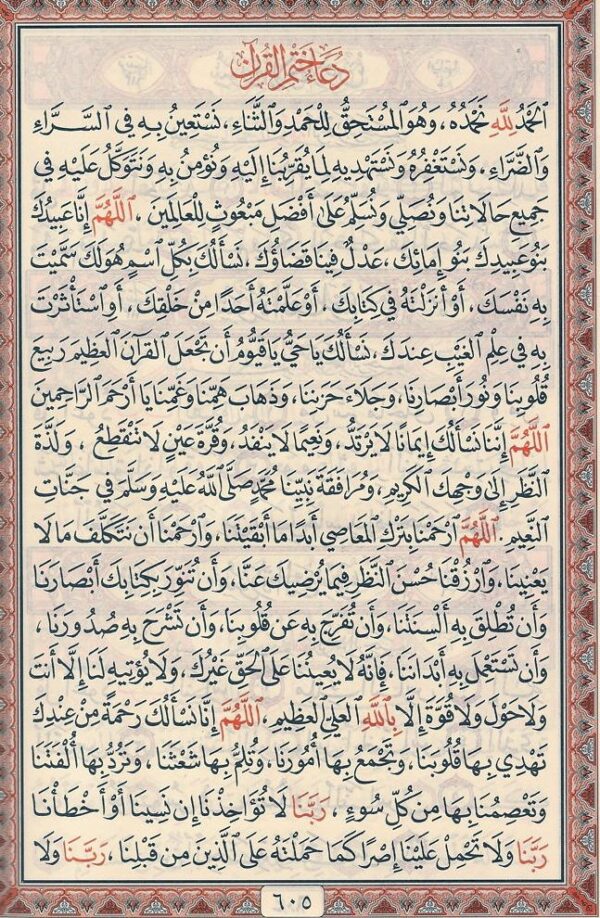 دُعَاءُ خَتْمِ الْقُرْآنِ
اَلْحَمْدُ لِلَّهِ نَحْمَدُهُ ، وَهُوَ الْمُسْتَحِقُّ لِلْحَمْدِ وَالثَّنَاءِ ، نَسْتَعِينُ بِهِ فِي السَّرَّاءِ
وَالضَّرَّاءِ ، وَنَسْتَغْفِرُهُ وَنَسْتَهْدِيهِ لِمَا يُقَرِّبُنَا إِلَيْهِ وَنُؤْمِنُ بِهِ وَنَتَوَكَّلُ عَلَيْهِ فِي
جَمِيعِ حَالَاتِنَا وَنُصَلِّي وَنُسَلِّمُ عَلَى أَفْضَلِ مَبْعُوثٍ لِلْعَالَمِينَ ، اَللَّهُمَّ إِنَّا عَبِيدُكَ
بَنُو عَبِيدِكَ بَنُو إِمَائِكَ ، عَدْلٌ فِينَا قَضَاؤُكَ ، نَسْأَلُكَ بِكُلِّ اسْمٍ هُوَ لَكَ سَمَّيْتَ
بِهِ نَفْسَكَ ، أَوْ أَنْزَلْتَهُ فِي كِتَابِكَ ، أَوْ عَلَّمْتَهُ أَحَدًا مِنْ خَلْقِكَ ، أَوِ اسْتَأْثَرْتَ
بِهِ فِي عِلْمِ الْغَيْبِ عِنْدَكَ ، نَسْأَلُكَ يَا حَيُّ يَا قَيُّومُ أَنْ تَجْعَلَ الْقُرْآنَ الْعَظِيمَ رَبِيعَ
قُلُوبِنَا وَنُورَ أَبْصَارِنَا ، وَجَلَاءَ حُزْنِنَا ، وَذَهَابَ هَمِّنَا وَغَمِّنَا يَا أَرْحَمَ الرَّاحِمِينَ
اَللَّهُمَّ إِنَّنَا نَسْأَلُكَ إِيمَانًا لَا يَرْتَدُّ ، وَنَعِيمًا لَا يَنْفَدُ ، وَقُرَّةَ عَيْنٍ لَا تَنْقَطِعُ ، وَلَذَّةَ
النَّظَرِ إِلَى وَجْهِكَ الْكَرِيمِ ، وَمُرَافَقَةَ نَبِيِّنَا مُحَمَّدٍ صَلَّى اللَّهُ عَلَيْهِ وَسَلَّمَ فِي جَنَّاتِ
النَّعِيمِ . اَللَّهُمَّ ارْحَمْنَا بِتَرْكِ الْمَعَاصِي أَبَدًا مَا أَبْقَيْتَنَا ، وَارْحَمْنَا أَنْ نَتَكَلَّفَ مَا لَا
يَعْنِينَا ، وَارْزُقْنَا حُسْنَ النَّظَرِ فِيمَا يُرْضِيكَ عَنَّا ، وَأَنْ تُنَوِّرَ بِكِتَابِكَ أَبْصَارَنَا
وَأَنْ تُطْلِقَ بِهِ أَلْسِنَتَنَا ، وَأَنْ تُفَرِّجَ بِهِ عَنْ قُلُوبِنَا ، وَأَنْ تَشْرَحَ بِهِ صُدُورَنَا ،
وَأَنْ تَسْتَعْمِلَ بِهِ أَبْدَانَنَا ، فَإِنَّهُ لَا يُعِينُنَا عَلَى الْحَقِّ غَيْرُكَ ، وَلَا يُؤْتِيهِ لَنَا إِلَّا أَنْتَ
وَلَا حَوْلَ وَلَا قُوَّةَ إِلَّا بِاللَّهِ الْعَلِيِّ الْعَظِيمِ ، اَللَّهُمَّ إِنَّا نَسْأَلُكَ رَحْمَةً مِنْ عِنْدِكَ
تَهْدِي بِهَا قُلُوبَنَا ، وَتَجْمَعُ بِهَا أُمُورَنَا ، وَتُلِمُّ بِهَا شَعْثَنَا ، وَتَرُدُّ بِهَا أُلْفَتَنَا
وَتَعْصِمُنَا بِهَا مِنْ كُلِّ سُوءٍ ، رَبَّنَا لَا تُؤَاخِذْنَا إِنْ نَسِينَا أَوْ أَخْطَأْنَا
رَبَّنَا وَلَا تَحْمِلْ عَلَيْنَا إِصْرًا كَمَا حَمَلْتَهُ عَلَى الَّذِينَ مِنْ قَبْلِنَا ، رَبَّنَا وَلَا
٦٠٥